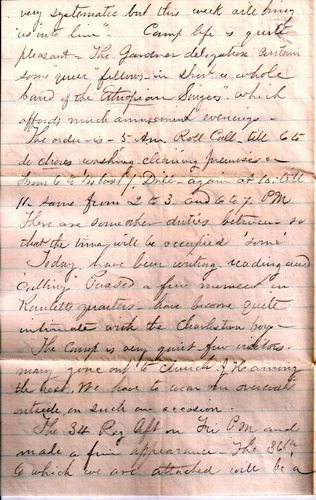 very systematic but this week will bring
us into line". Camp life is quite
pleasant - The Gardner delegation contain
some queer fellows - in short a whole
band of the "Ethiopian Singers" which
affords much amusement evenings -
The order is - 5 Am. Roll Call. till 6 to
do chores washing cleaning premises &c
from 6 to Drill - again at till
11 - same from 2 to 3 and 6 to 7 P.M
There are some other duties between so
that the time will be occupied 'some'
Today have been writing reading and
'calling' Passed a few moments in
quarters - have become quite
intimate with the Charlestown boys -
The Camp is very quiet few visitors -
many gone out to church among
the rest. We have to wear an overcoat
outside on such an occasion.
The 34 Reg left on Fri P.M and
made a fine appearance - The 36th
to which we are attached will be a